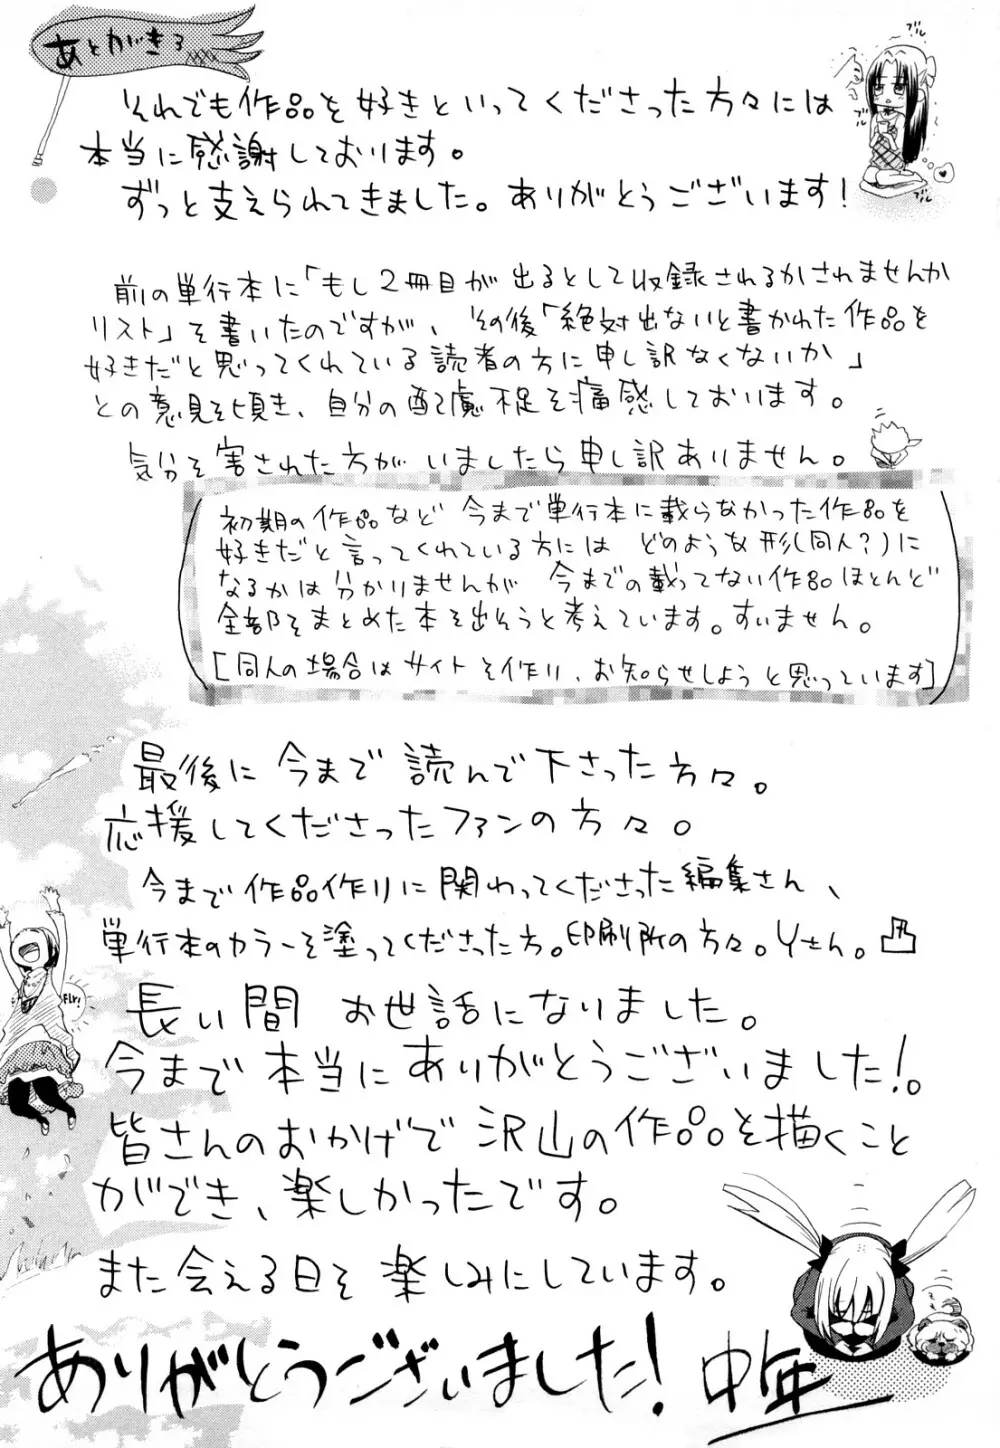 あとがき3
それでも作品を好きといってくださった方々には
本当に感謝しております。
ずっと支えられてきました。ありがとうございます!
ブル
ブル
ブル
前の単行本に「もし2冊目が出るとして収録されるかされませんか
リスト」を書いたのですが、その後「絶対出ないと書かれた作品を
好きだと思ってくれている読者の方に申し訳なくないか」
との意見を頂き、自分の配慮不足を痛感しております。
気分を害された方がいましたら申し訳ありません。
初期の作品など 今まで単行本に載らなかった作品を
好きだと言ってくれている方には どのような形(同人?)に
なるかは分かりませんが 今までの載ってない作品ほとんど
全部をまとめた本を出そうと考えています。すいません。
[同人の場合はサイトを作り、お知らせしようと思っています]
最後に今まで読んで下さった方々。
応援してくださったファンの方々。
今まで作品作りに関わってくださった編集さん、
単行本のカラーを塗ってくださった方。印刷所の方々。Yさん。
FLY!
長い間 お世話になりました。
今まで本当にありがとうございました!。
皆さんのおかげで沢山の作品を描くこと
ができ、楽しかったです。
また会える日を楽しみにしています。
ありがとうございました! 中年